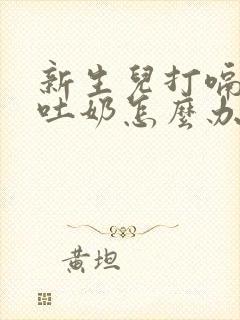 新生兒打嗝
吐奶怎麼办
黃坦